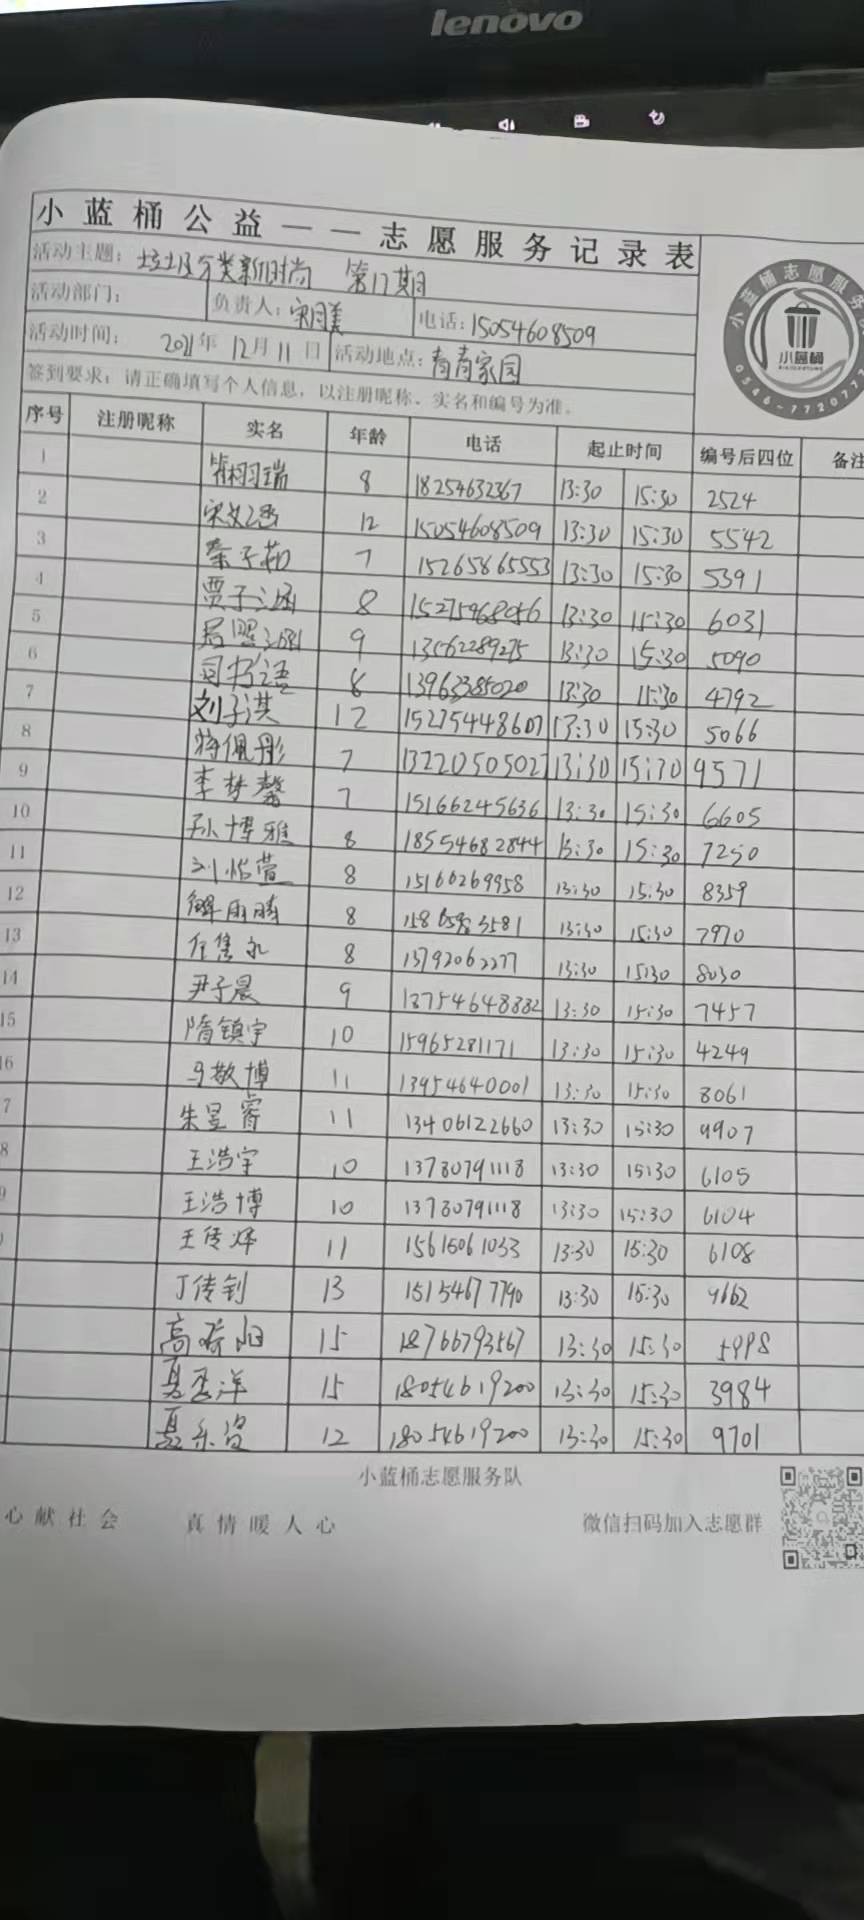 lenovo
小蓝桶公益——志愿服务记录表
活动主题: 垃圾分类新时尚 第17期
活动部门: 负责人: 宋同美 电话: 15054608509
活动时间: 2021年12月11日 活动地点: 青青家园
签到要求: 请正确填写个人信息, 以注册昵称、实名和编号为准。
小蓝桶志愿服务
小蓝桶
0546-7720777
序号 注册昵称 实名 年龄 电话 起止时间 编号后四位 备注
1 8 18254632367 13:30 15:30 2524
2 12 15054608509 13:30 15:30 5542
3 秦子茹 7 15265865553 13:30 15:30 5391
4 贾子涵 8 13:30 15:30 6031
5 9 13562289275 13:30 15:30 5090
6 司书语 8 13963385020 13:30 15:30 4792
7 刘子淇 12 15275448607 13:30 15:30 5066
8 蒋佩彤 7 13220505027 13:30 15:30 9571
9 李梦馨 7 15166245636 13:30 15:30 6605
10 孙博雅 8 18554682844 13:30 15:30 7250
11 刘怡萱 8 15166269958 13:30 15:30 8359
12 解雨腾 8 13:30 15:30 7970
13 8 13792062277 13:30 15:30 8030
14 尹子晨 9 13754648332 13:30 15:30 7457
15 隋镇宇 10 15965281171 13:30 15:30 4249
16 马敬博 11 13954640001 13:30 15:30 8061
7 朱昱睿 11 13406122660 13:30 15:30 9907
8 王浩宇 10 13780791118 13:30 15:30 6105
9 王浩博 10 13780791118 13:30 15:30 6104
王传烨 11 15615061033 13:30 15:30 6108
丁传钊 13 15154677790 13:30 15:30 4662
15 18766793567 13:30 15:30 5998
15 18054619200 13:30 15:30 3984
12 18054619200 13:30 15:30 9701
小蓝桶志愿服务队
心献社会 真情暖人心 微信扫码加入志愿群